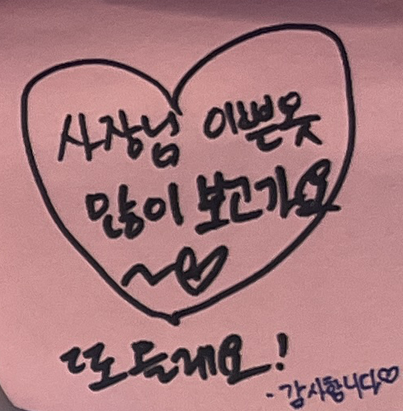 사장님 이쁜옷
많이 보고가요
~♡
또 올게요!
- 감사합니다♡